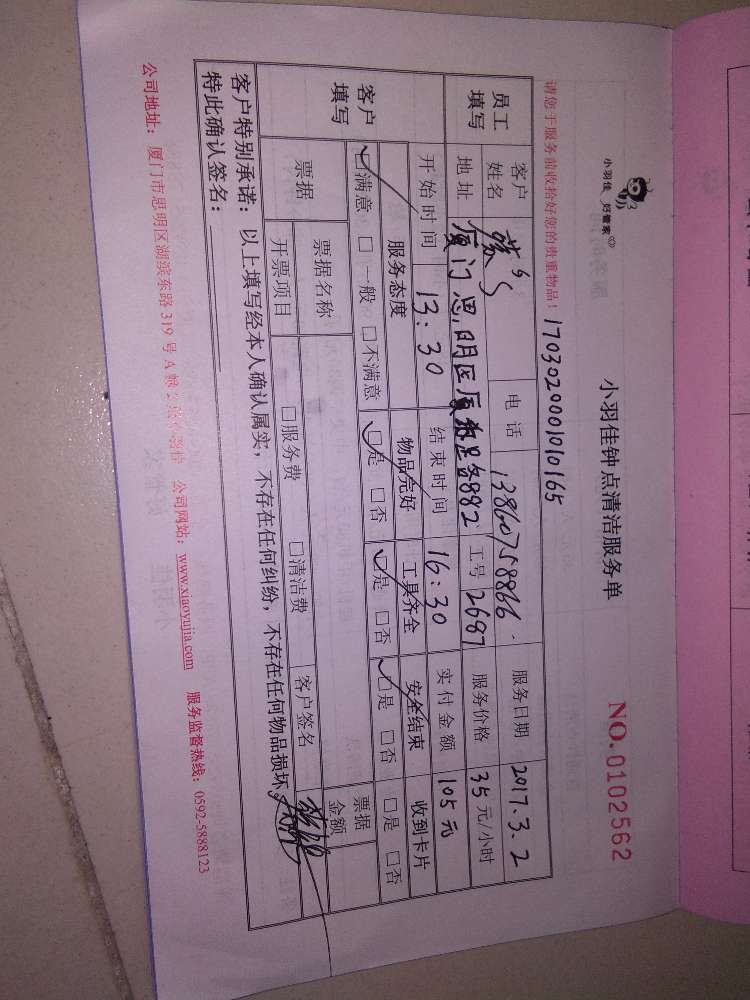 小羽佳 好管家
小羽佳钟点清洁服务单
NO.0102562
请您于服务前收拾好您的贵重物品！
1703020001010165
员工填写
客户姓名 电话 13860758866 服务日期 2017.3.2
地址 厦门思明区厦禾路882 工号 2687 服务价格 35元/小时
开始时间 13:30 结束时间 16:30 实付金额 105元
客户填写
服务态度 物品完好 工具齐全 安全结束 收到卡片
☑满意 □一般 □不满意 ☑是 □否 ☑是 □否 ☑是 □否 □是 □否
票据 票据名称 □服务费 □清洁费 客户签名 票据金额
开票项目
客户特别承诺：以上填写经本人确认属实，不存在任何纠纷，不存在任何物品损坏。
特此确认签名：
公司地址：厦门市思明区湖滨东路319号A幢 公司网站：www.xiaoyujia.com 服务监督热线：0592-5888123